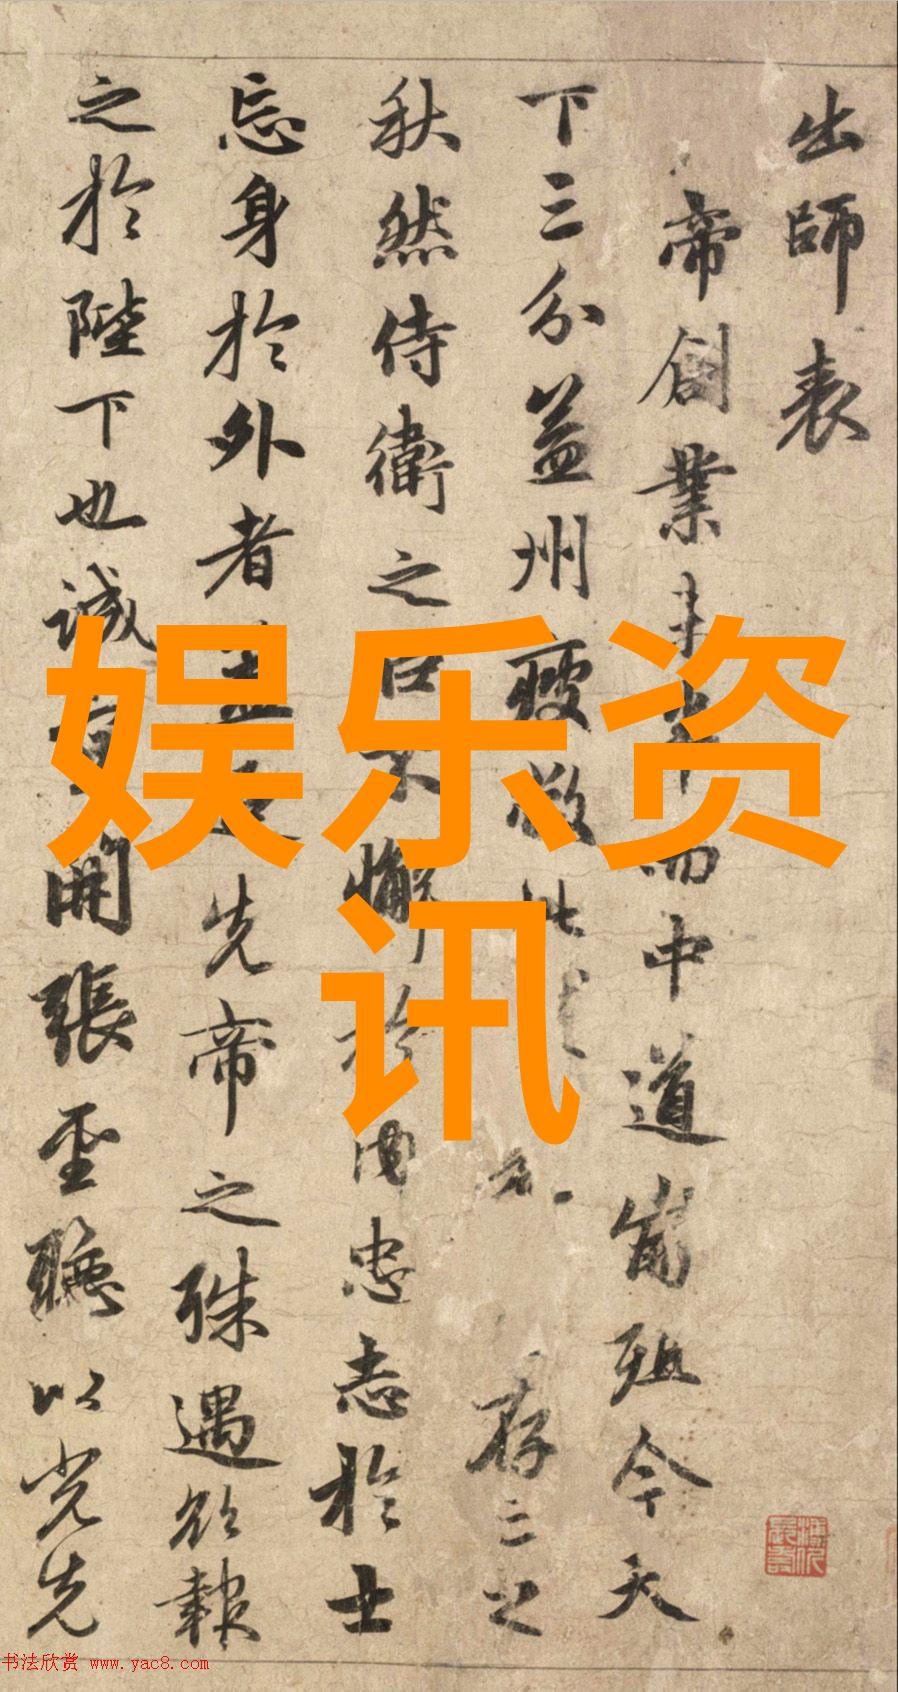 出師表
帝創業未半而中道崩殂今天
下三分益州疲敝此存亡之
秋然侍衛之臣不懈於内忠志於士
忘身於外者蓋追先帝之殊遇欲報
之於陛下也誠宜開張聖聽以光先
娱乐资
讯
书法欣赏 www.yac8.com